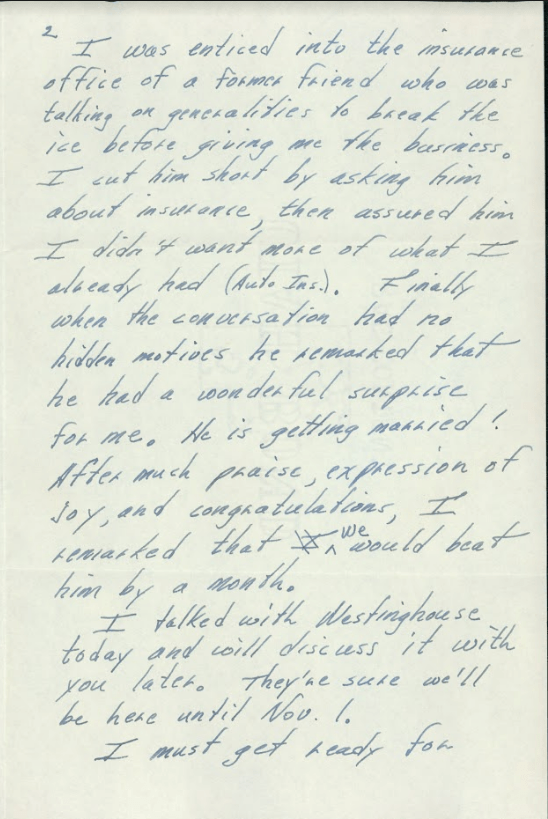 2
I was enticed into the insurance
office of a former friend who was
talking on generalities to break the
ice before giving me the business.
I cut him short by asking him
about insurance, then assured him
I didn't want more of what I
already had (Auto Ins.). Finally
when the conversation had no
hidden motives he remarked that
he had a wonderful surprise
for me. He is getting married!
After much praise, expression of
joy, and congratulations, I
remarked that I ^ we would beat
him by a month.
I talked with Westinghouse
today and will discuss it with
you later. They're sure we'll
be here until Nov. 1.
I must get ready for